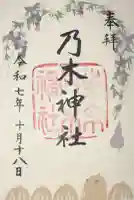 奉拝
乃木神社
令和七年十月十八日